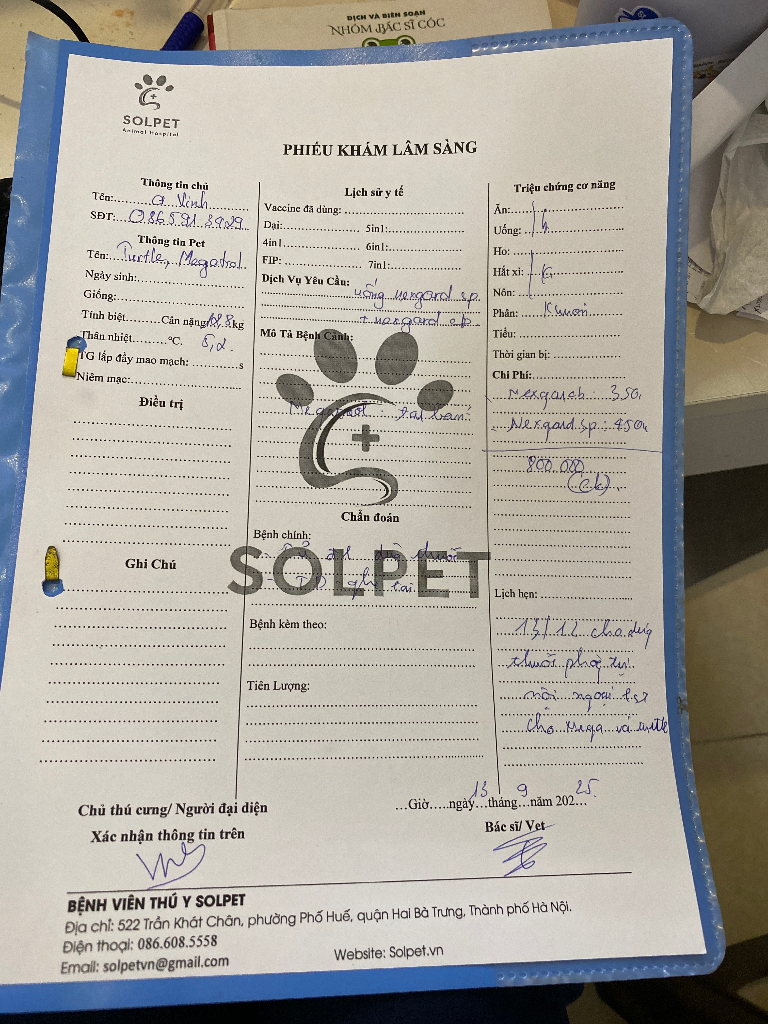 DỊCH VÀ BIÊN SOẠN
NHÓM BÁC SĨ CÓC
SOLPET
Animal Hospital
PHIẾU KHÁM LÂM SÀNG
Thông tin chủ
Tên: a Vinh
SĐT: 0865913929
Thông tin Pet
Tên: Turtle, Megatrol
Ngày sinh:
Giống:
Tính biệt Cân nặng kg
Thân nhiệt °C. 5,2
TG lấp đầy mao mạch: s
Niêm mạc:
Điều trị
Ghi Chú
Lịch sử y tế
Vaccine đã dùng:
Dại: 5in1:
4in1 6in1:
FIP: 7in1:
Dịch Vụ Yêu Cầu:
uống nexgard sp
+ nexgard cb
Mô Tả Bệnh Cảnh:
SOLPET
Chẩn đoán
Bệnh chính:
Bệnh kèm theo:
Tiên Lượng:
Triệu chứng cơ năng
Ăn:
Uống:
Ho:
Hắt xì:
Nôn:
Phân: Khuôn
Tiểu:
Thời gian bị:
Chi Phí:
Nexgard cb: 350k
Nexgard sp: 450k
800.000
(ck)
Lịch hẹn:
13/12 cho dùng
thuốc phòng trị
nội ngoại kst
cho Mega và turtle
Chủ thú cưng/ Người đại diện
Xác nhận thông tin trên
Giờ ngày 13 tháng 9 năm 2025
Bác sĩ/ Vet
BỆNH VIÊN THÚ Y SOLPET
Địa chỉ: 522 Trần Khát Chân, phường Phố Huế, quận Hai Bà Trưng, Thành phố Hà Nội.
Điện thoại: 086.608.5558
Email: solpetvn@gmail.com Website: Solpet.vn